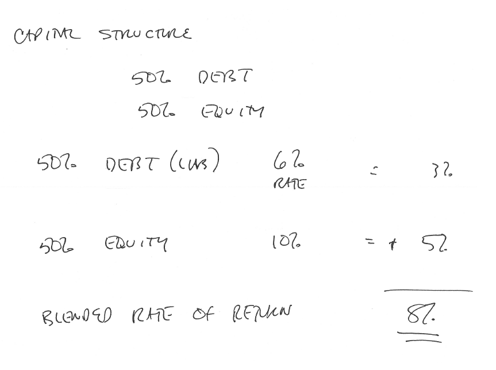 CAPITAL STRUCTURE
50% DEBT
50% EQUITY
50% DEBT (LMB) 6% = 3%
RATE
50% EQUITY 10% = + 5%
BLENDED RATE OF RETURN 8%